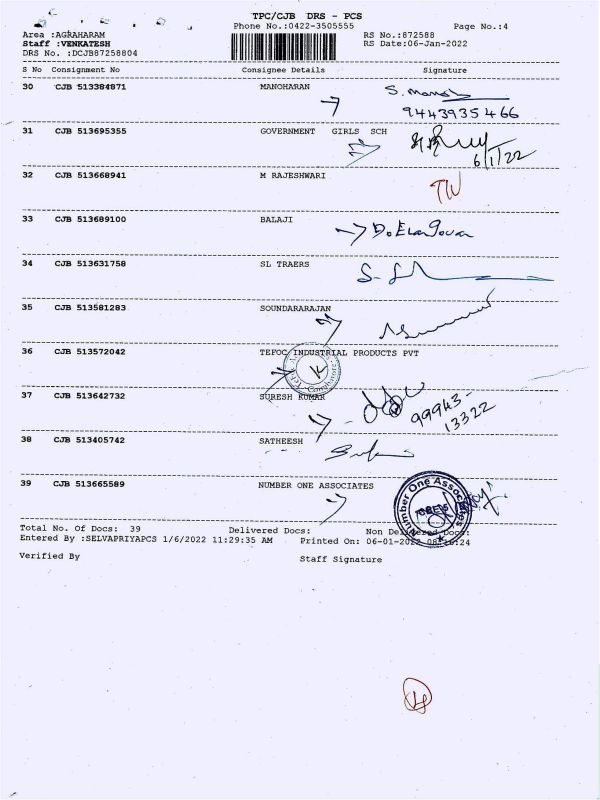 TPC/CJB DRS - PCS
Phone No.:0422-3505555 Page No.:4
Area :AGRAHARAM RS No.:872588
Staff :VENKATESH RS Date:06-Jan-2022
DRS No. :DCJB87258804
S No Consignment No Consignee Details Signature
30 CJB 513384871 MANOHARAN
9443935466
31 CJB 513695355 GOVERNMENT GIRLS SCH
6/1/22
32 CJB 513668941 M RAJESHWARI
33 CJB 513689100 BALAJI
34 CJB 513631758 SL TRAERS
35 CJB 513581283 SOUNDARARAJAN
36 CJB 513572042 TEFOC INDUSTRIAL PRODUCTS PVT
37 CJB 513642732 SURESH KUMAR
99943-
13322
38 CJB 513405742 SATHEESH
39 CJB 513665589 NUMBER ONE ASSOCIATES
Number One Associates
CBE
Total No. Of Docs: 39 Delivered Docs: Non Delivered Docs:
Entered By :SELVAPRIYAPCS 1/6/2022 11:29:35 AM Printed On: 06-01-2022
Verified By Staff Signature
4